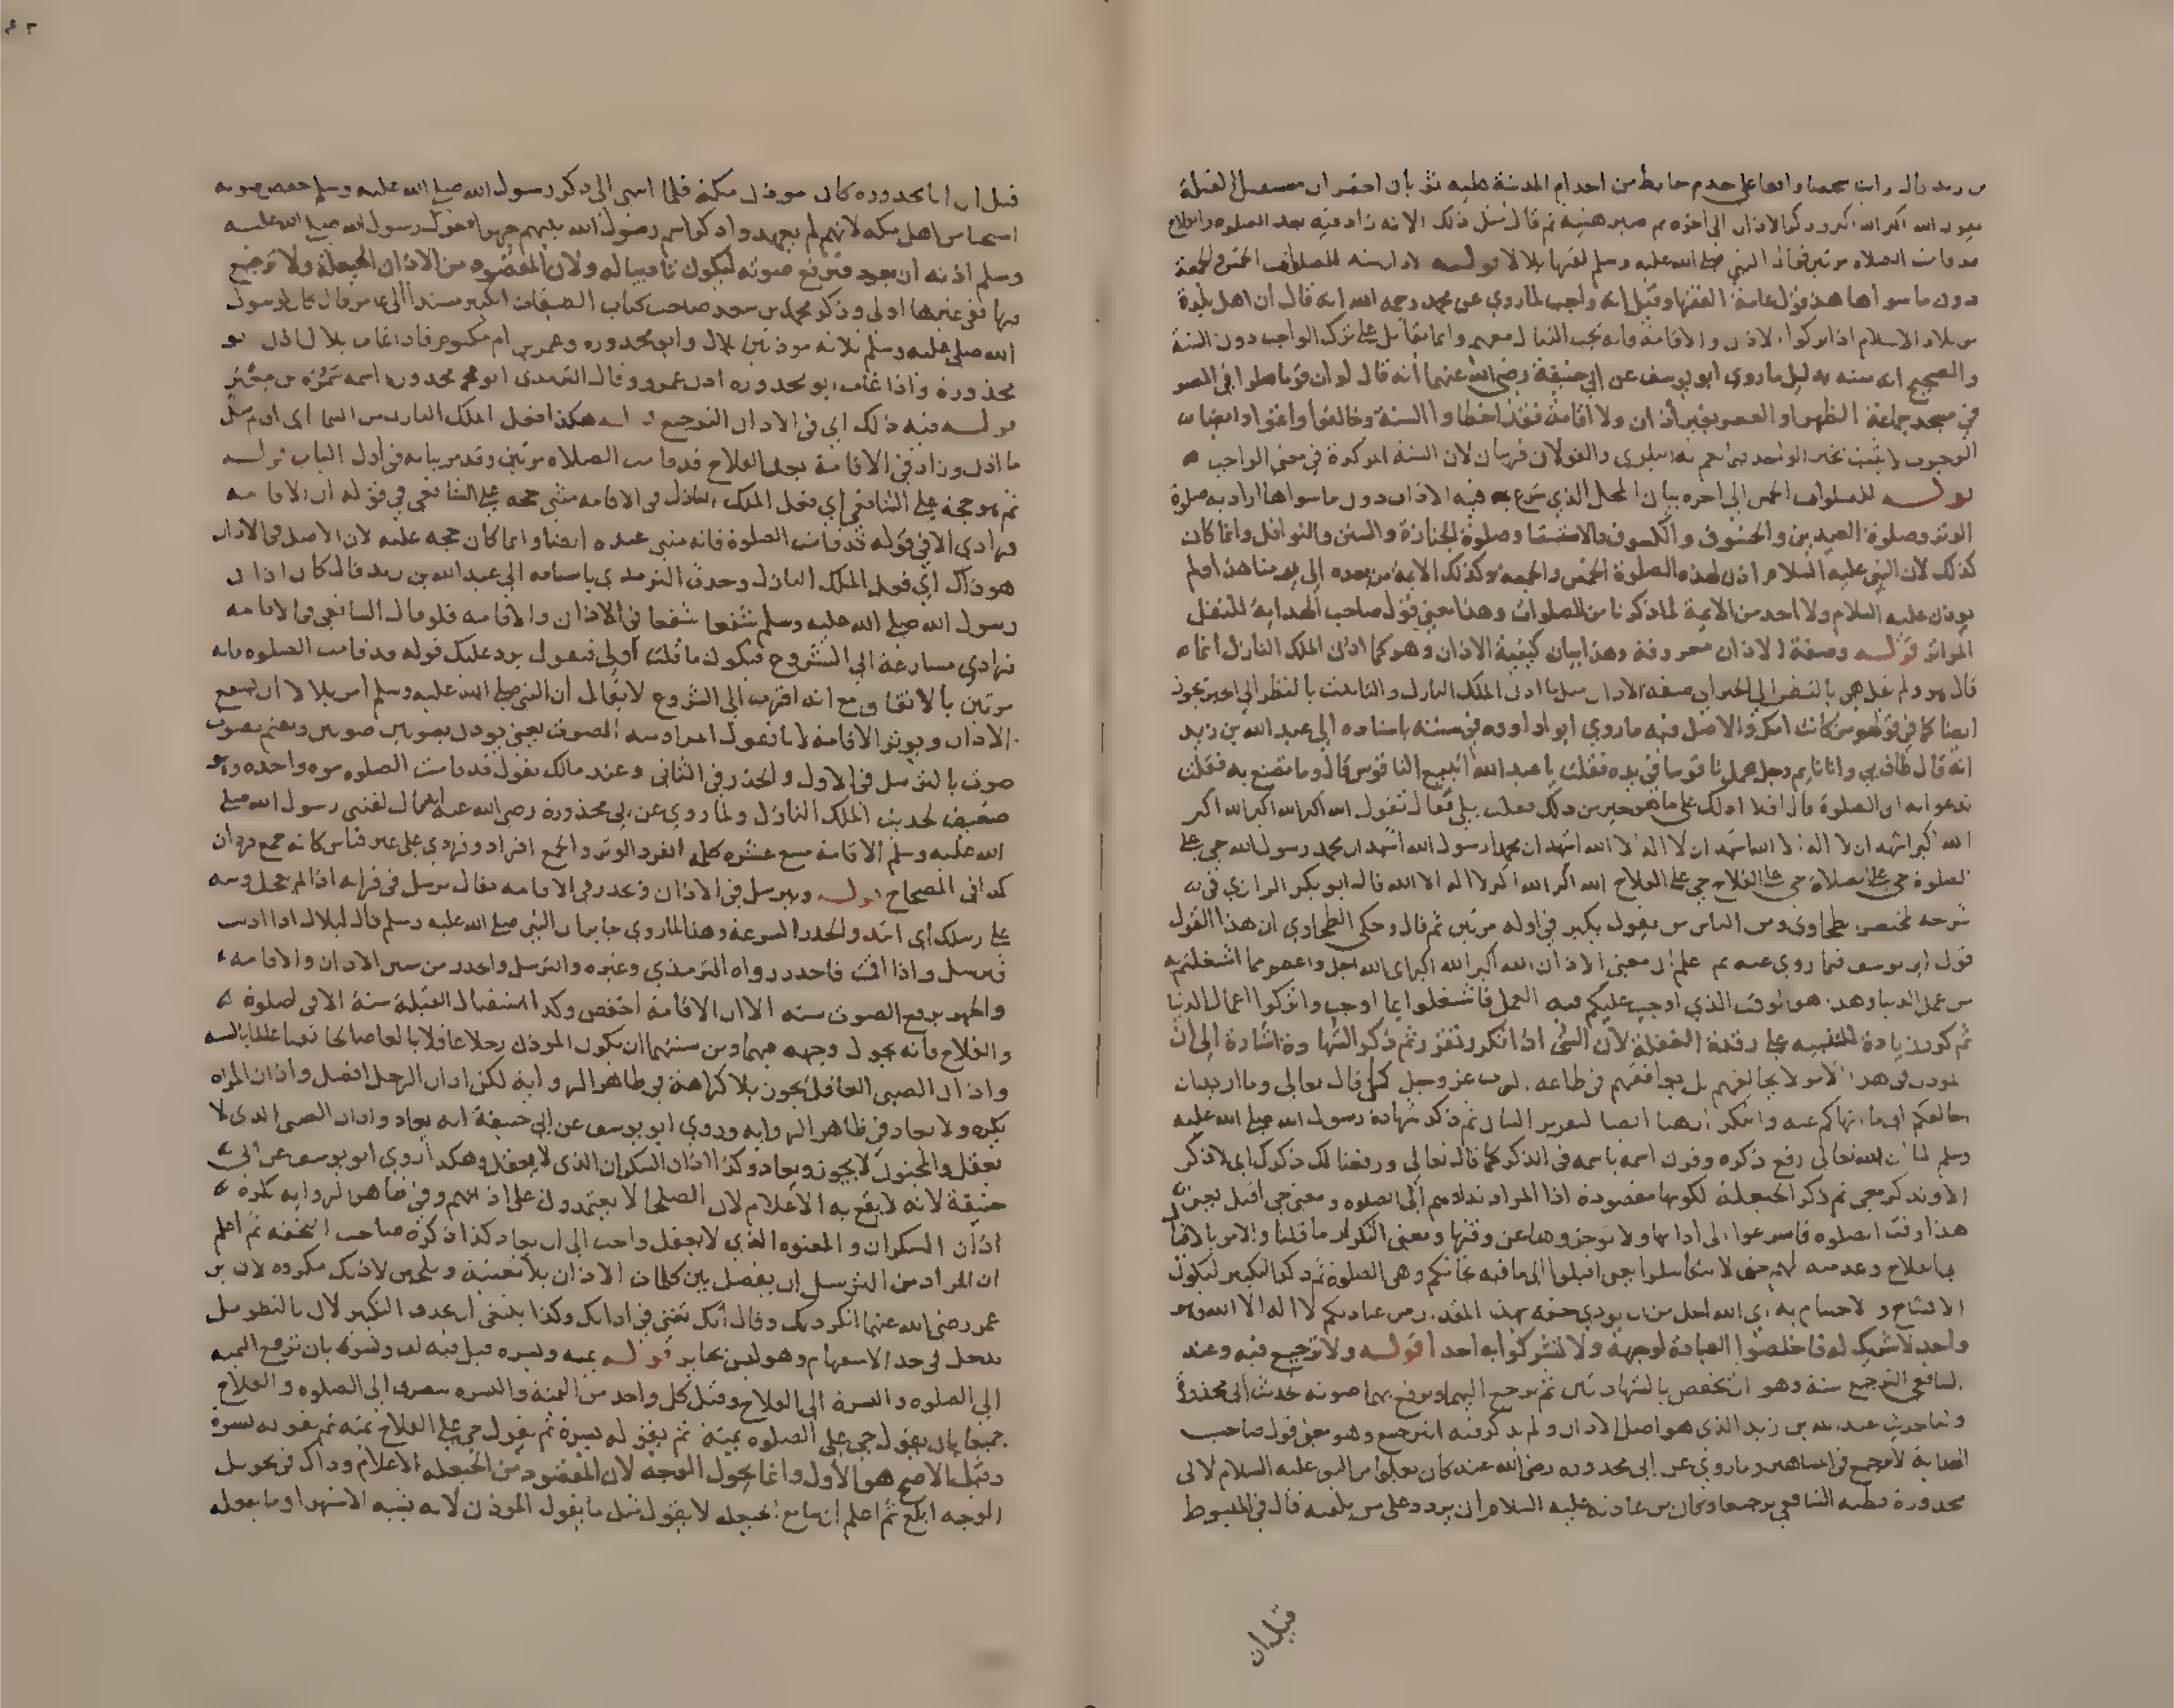 بن زيد قال رايت شخصا واقفا على جذم حايط من اجذام المدينة عليه ثوبان اخضران مستقبل القبلة
يقول الله اكبر الله اكبر وذكر الاذان الى اخره ثم صبر هنية ثم قال مثل ذلك الا انه زاد فيه بعد الصلوه والفلاح
قد قامت الصلاه مرتين فقال النبي صلى الله عليه وسلم لقنها بلالا قوله الاذان سنه للصلوات الخمس والجمعة
دون ما سواها هذا قول عامة الفقها وقيل انه واجب لما روي عن محمد رحمه الله انه قال ان اهل بلدة
من بلاد الاسلام اذا تركوا الاذان والاقامة فانه يجب القتال معهم وانما يقاتل على ترك الواجب دون السنة
والصحيح انه سنه دليل ما روى ابو يوسف عن ابي حنيفة رضي الله عنهما انه قال لو ان قوما صلوا في المصر
في مسجد جماعة الظهر او العصر بغير اذان ولا اقامة فقد اخطاوا السنة وخالفوا واثموا وايضا
الوجوب لا يثبت بخبر الواحد فيما تعم به البلوى والقولان قريبان لان السنة الموكدة في معنى الواجب
قوله للصلوات الخمس الى اخره بيان المحل الذي شرع فيه الاذان دون ما سواها اراد به صلوة
الوتر وصلوة العيدين والخسوف والكسوف والاستسقا وصلوة الجنازة والسنن والنوافل وانما كان
كذلك لان النبي عليه السلام اذن لهذه الصلوة الخمس والجمعه وكذلك الايمة من بعده الى يومنا هذا ولم
يوذن عليه السلام ولا احد من الايمة لما ذكرنا من الصلوات وهذا معنى قول صاحب الهداية للنقل
المتواتر قوله وصفة الاذان معروفة وهذا بيان كيفية الاذان وهو كما اذن الملك النازل
ايضا كما في قولهم من كانت امك والاصل فيه ما روى ابو داوود في سننه باسناده الى عبد الله بن زيد
انه قال طاف بي وانا نايم رجل يحمل ناقوسا في يده فقلت يا عبد الله اتبيع الناقوس قال وما تصنع به فقلت
ندعو به الى الصلوة قال افلا ادلك على ما هو خير من ذلك فقلت بلى فقال تقول الله اكبر الله اكبر الله اكبر
الله اكبر اشهد ان لا اله الا الله اشهد ان لا اله الا الله اشهد ان محمدا رسول الله اشهد ان محمد رسول الله حي على
الصلوة حي على الصلاة حي على الفلاح حي على الفلاح الله اكبر الله اكبر لا اله الا الله قال ابو بكر الرازي في
شرحه لمختصر الطحاوي ومن الناس من يقول يكبر في اوله مرتين ثم قال وحكى الطحاوي ان هذا القول
قول ابي يوسف فيما روي عنه ثم اعلم ان معنى الاذان الله اكبر الله اكبر اي الله اجل واعظم مما اشغلتم به
من عمل الدنيا وهذا هو الوقت الذي اوجب عليكم فيه العمل فاشتغلوا بما اوجب واتركوا اعمال الدنيا
ثم كرر زيادة للتنبيه على رقدة الغفلة لان الشي اذا تكرر تقرر ثم ذكر الشهادة اشارة الى ان
الموذن في هذا الامر لا يخالفهم بل يوافقهم في طاعة الرب عز وجل كما قال تعالى وما اريد ان
اخالفكم الى ما انهاكم عنه والتكرار ايضا لتقرير الشان ثم ذكر شهادة رسول الله صلى الله عليه
وسلم لما ان الله تعالى رفع ذكره وقرن اسمه باسمه في الذكر كما قال تعالى ورفعنا لك ذكرك اي لا اذكر
الا وتذكر معي ثم ذكر الحيعلة لكونها مقصودة اذا المراد نداوهم الى الصلوه ومعنى حي اقبل
هذا وقت الصلوه فاسرعوا الى ادايها ولا توخروها عن وقتها ومعنى التكرار ما قلنا
واحد لا شريك له فاخلصوا العبادة لوجهه ولا تشركوا به احدا قوله ولا ترجيع فيه وعند
الشافعي الترجيع سنة وهو ان يخفض بالشهادتين ثم يرجع اليهما ويرفع بهما صوته لحديث ابي محذورة
ولنا حديث عبد الله بن زيد الذي هو اصل الاذان ولم يذكر فيه الترجيع وهو معنى قول صاحب
الهداية لا ترجيع في المشاهير وما روي عن ابي محذوره رضي الله عنه كان تعليما من النبي عليه السلام لابي
محذورة فظنه الشافعي ترجيعا وكان من عادته عليه السلام ان يردد على من يلقنه قال في المبسوط
قيل ان
قيل ان ابا محذوره كان موذن مكة فلما انتهى الى ذكر رسول الله صلى الله عليه وسلم خفض صوته
استحيا من اهل مكه لانهم لم يعهدوا ذكر اسم رسول الله بينهم جهرا ففرك رسول الله صلى الله عليه
وسلم اذنه ان يعود فيرفع صوته ليكون تاديبا له ولان المقصود من الاذان الحيعلة ولا ترجيع
فيها ففي غيرها اولى وذكر محمد بن سعد صاحب كتاب الطبقات الكبير مسندا الى عامر قال كان لرسول
الله صلى الله عليه وسلم ثلاثه موذنين بلال وابو محذوره وعمر بن ام مكتوم فاذا غاب بلال اذن ابو
محذورة واذا غاب ابو محذوره اذن عمرو وقال الترمذي ابو محذورة اسمه سمرة بن معير
قوله فيه ذلك اي في الاذان الترجيع قوله هكذا فعل الملك النازل من السما اي اذن مثل
ما اذن وزاد في الاقامة بعد الفلاح قد قامت الصلاه مرتين وقد مر بيانه في اول الباب قوله
ثم هو حجة على الشافعي اي فعل الملك النازل في الاقامه مثنى حجة على الشافعي في قوله ان الاقامه
فرادي الا في قوله قد قامت الصلوة فانه مثنى عنده ايضا وانما كان حجه عليه لان الاصل في الاذان
هو ذاك اي فعل الملك النازل وحدث الترمذي باسناده الى عبد الله بن زيد قال كان اذان
رسول الله صلى الله عليه وسلم شفعا شفعا في الاذان والاقامه فلو قال الشافعي في الاقامه
فرادي مسارعة الى الشروع فيكون ما قلت اولى فنقول يرد عليك قوله قد قامت الصلوه فانه
مرتين بالاتفاق مع انه اقرب الى الشروع لا يقال ان النبي صلى الله عليه وسلم امر بلالا ان يشفع
الاذان ويوتر الاقامة لانا نقول المراد منه الصوت يعني يوذن بصوتين صوتين ويقيم بصوت
صوت بالترسل في الاول والحذر في الثاني وعند مالك يقول قد قامت الصلوه مره واحده وهو
ضعيف لحديث الملك النازل ولما روي عن ابي محذورة رضي الله عنه انه قال لقنني رسول الله صلى
الله عليه وسلم الاقامة سبع عشره كلمة الفرد الوتر والجمع افراد وفرادي على غير قياس كانه جمع فردان
كذا في الصحاح قوله ويترسل في الاذان ويحدر في الاقامه يقال ترسل في قراته اذا لم يعجل ومنه
على رسلك اي اتئد والحدر السرعة وهذا لما روى جابر ان النبي صلى الله عليه وسلم قال لبلال اذا اذنت
فترسل واذا اقمت فاحدر رواه الترمذي وغيره والترسل والحدر من سنن الاذان والاقامه
والجهر برفع الصوت سنه الا ان الاقامة اخفض وكذا استقبال القبلة سنة الا في الصلوة
والفلاح فانه يحول وجهه فيهما ومن سنتهما ان يكون الموذن رجلا عاقلا بالغا صالحا تقيا عالما بالسنه
واذان الصبي العاقل يجوز بلا كراهة في ظاهر الرواية لكن اذان الرجل افضل واذان المراه
يكره ولا يعاد في ظاهر الروايه وروى ابو يوسف عن ابي حنيفة انه يعاد واذان الصبي الذي لا
يعقل والمجنون لا يجوز ويعاد وكذا اذان السكران الذي لا يعقل وهكذا روى ابو يوسف عن ابي
حنيفة لانه لا يقع به الاعلام لان الصلحا لا يعتمدون على اذانهم وفي ظاهر الروايه يكره
اذان السكران والمعتوه الذي لا يعقل واحب الي ان يعاد كذا ذكره صاحب التحفه ثم اعلم
ان المراد من الترسل ان يفصل بين كلمات الاذان بلا تغنية وتلحين لان ذلك مكروه لان بن
عمر رضي الله عنهما انكر ذلك وقال انك تغني في اذانك وكذا ينبغي ان يحذف التكبير لان بالتطويل
يدخل في حد الاستفهام وهو ليس بجايز قوله يمنه ويسره قيل فيه لف ونشر بان ترجع اليمنه
الى الصلوه واليسرة الى الفلاح وقيل كل واحد من اليمنة واليسره يصرف الى الصلوه والفلاح
جميعا بان يقول حي على الصلوه يمينة ثم يقول له يسرة ثم يقول حي على الفلاح يمنه ثم يقوله يسرة
وقيل الاصح هو الاول وانما يحول الوجه لان المقصود من الحيعله الاعلام وذاك في تحويل
الوجه ابلغ ثم اعلم ان سامع الحيعله لا يقول مثل ما يقول الموذن لانه يشبه الاستهزا وما يقوله